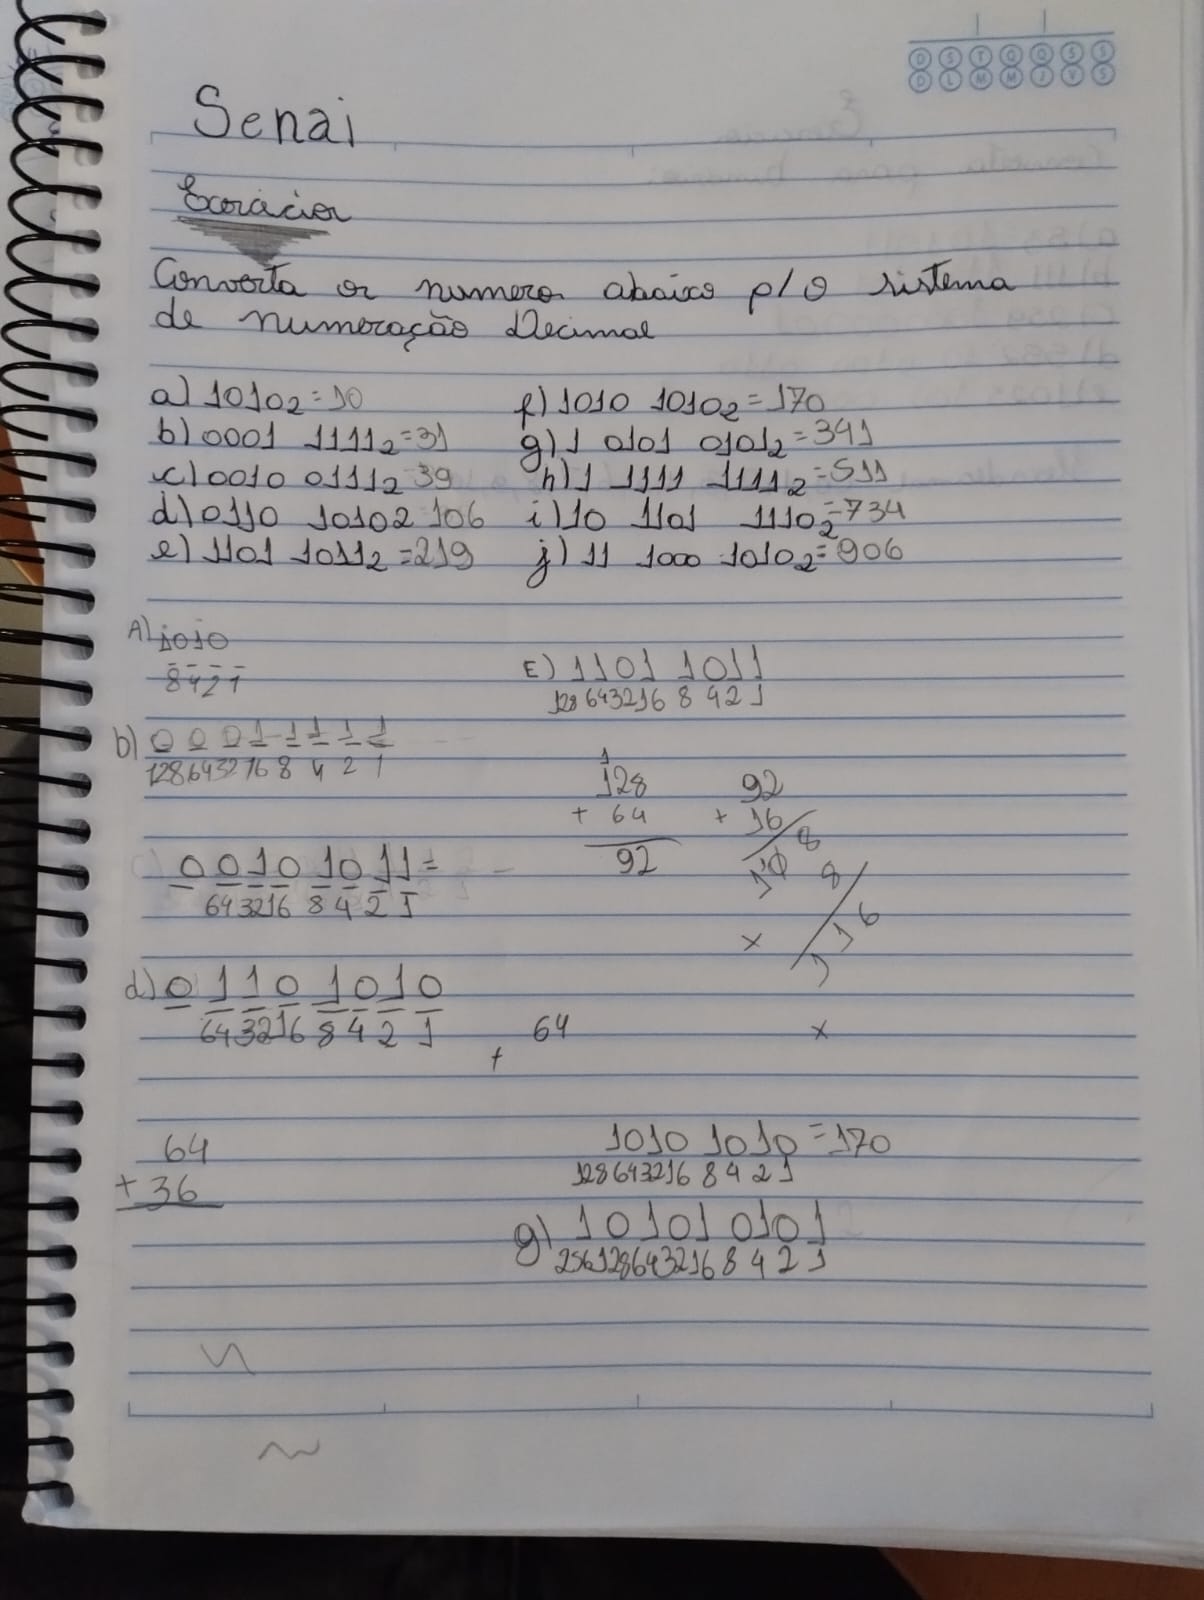 D S T Q Q S S
D L M M J V S
Senai
Exercícios
Converta os numeros abaixo p/ o sistema
de numeração Decimal
a) 1010₂ = 10
f) 1010 1010₂ = 170
b) 0001 1111₂ = 31
g) 1 0101 0101₂ = 341
c) 0010 0111₂ 39
h) 1 1111 1111₂ = 511
d) 0110 10102 106
i) 10 1101 1110₂ = 734
e) 1101 1011₂ = 219
j) 11 1000 1010₂ = 906
A) 1010
8421
E) 1101 1011
128 64 32 16 8 4 2 1
b) 0 0 0 1 1 1 1 1
128 64 32 16 8 4 2 1
1
128
+ 64
92
92
+ 16
8
c) 0010 1011 =
64 32 16 8 4 2 1
8
16
x
d) 0 110 1010
64 32 16 8 4 2 1
64
+
x
64
+ 36
1010 1010 = 170
128 64 32 16 8 4 2 1
g) 10101 0101
256 128 64 32 16 8 4 2 1